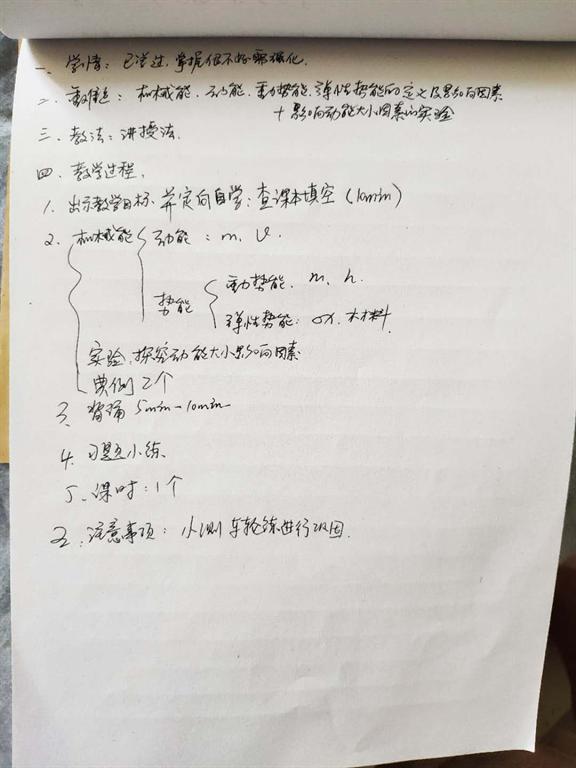 一、学情：已学过，掌握但不好需强化.
二、重难点：机械能、动能、重力势能、弹性势能的定义及影响因素
+ 影响动能大小因素的实验
三、教法：讲授法.
四、教学过程.
1. 出示教学目标，并定向自学：查课本填空（10min）
2. 机械能 动能：m、v.
势能 重力势能、m、h.
弹性势能：σx、材料.
实验：探究动能大小影响因素
典例2个
3、背诵 5min-10min
4. 习题小练.
5、课时：1个
五、注意事项：小测车轮练进行巩固.